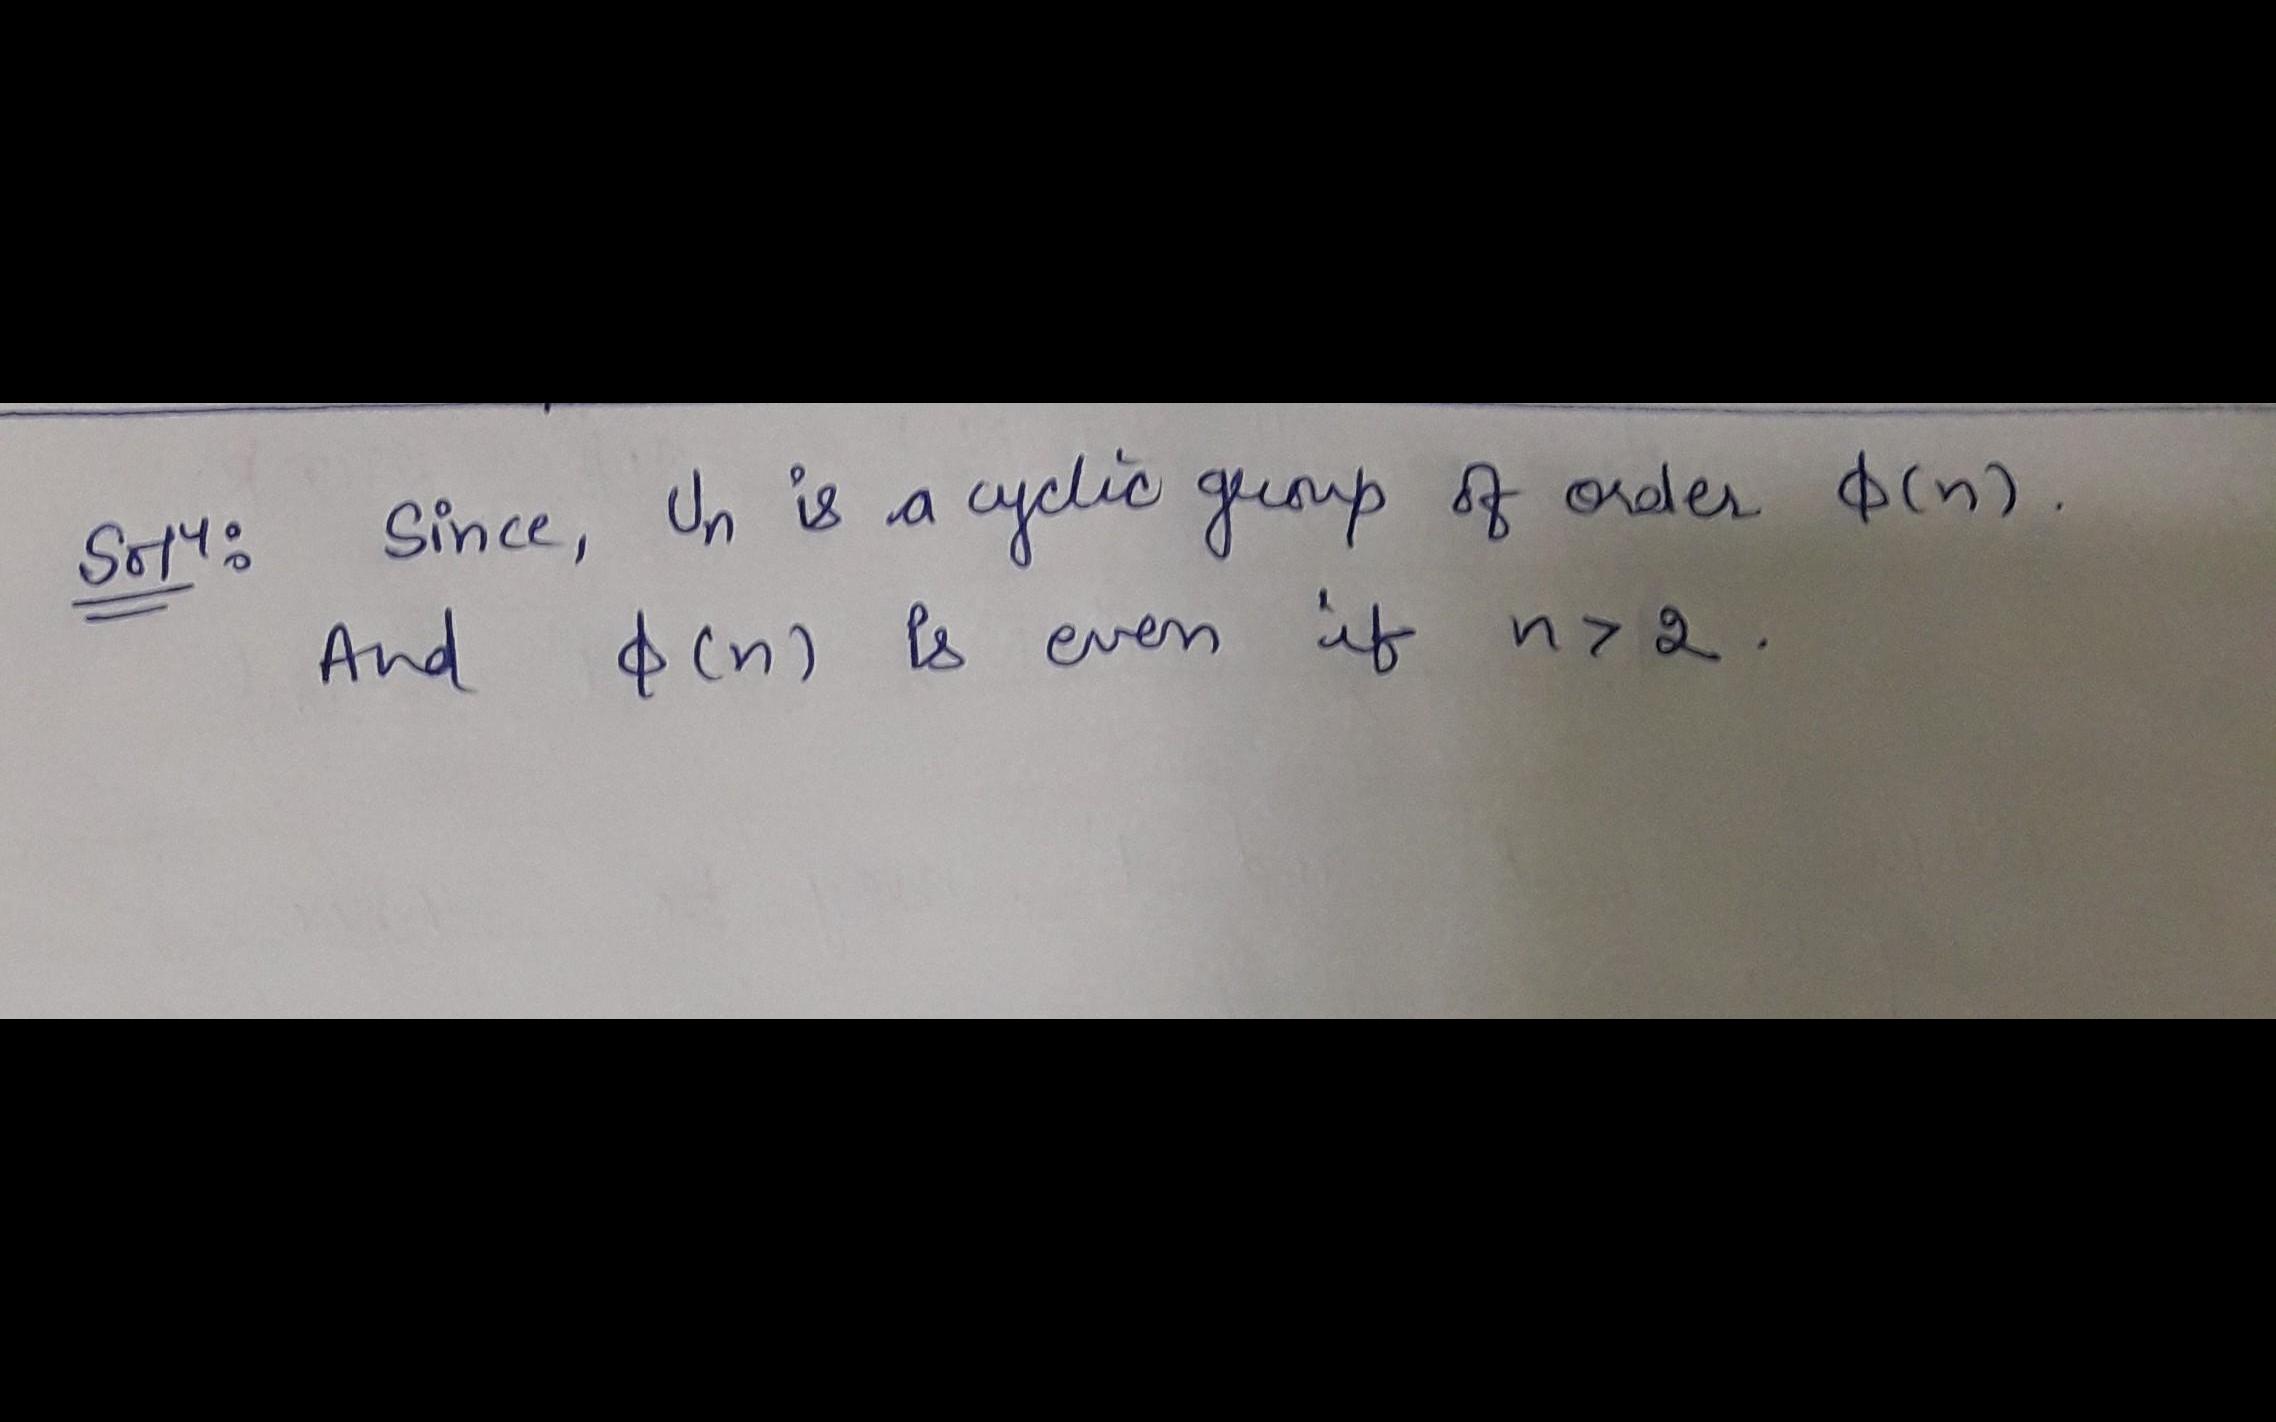 Solⁿ: Since, Un is a cyclic group of order ϕ(n).
And ϕ(n) is even if n > 2.